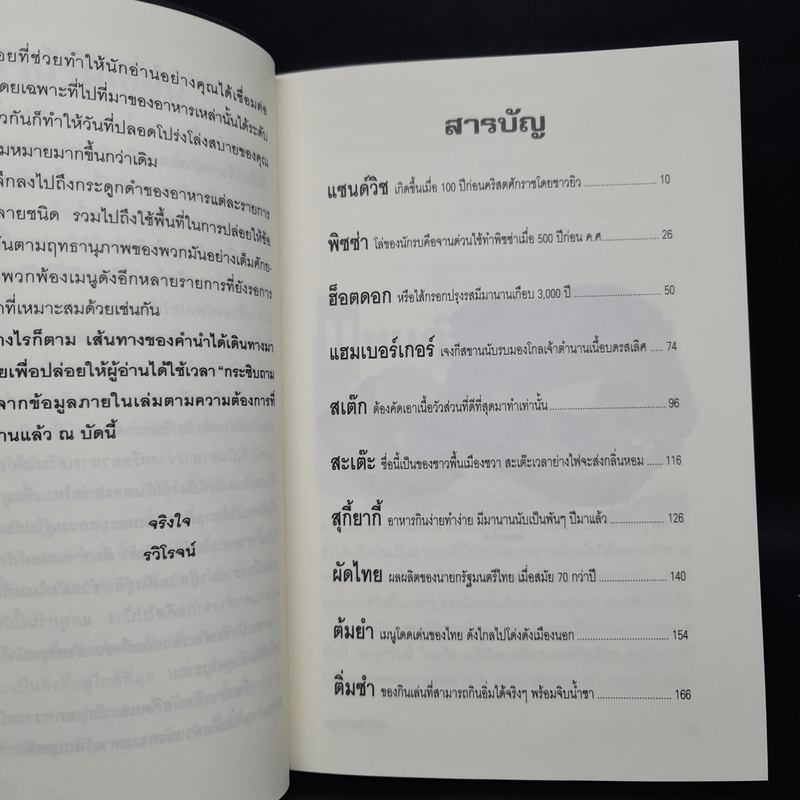 อยที่ช่วยทำให้นักอ่านอย่างคุณได้เชื่อมต่อ
ดยเฉพาะที่ไปที่มาของอาหารเหล่านั้นได้ระดับ
วกันก็ทำให้วันที่ปลอดโปร่งโล่งสบายของคุณ
มหมายมากขึ้นกว่าเดิม
ลึกลงไปถึงกระดูกดำของอาหารแต่ละรายการ
ลายชนิด รวมไปถึงใช้พื้นที่ในการปล่อยให้ข้อ
นตามฤทธานุภาพของพวกมันอย่างเต็มศักย-
พวกพ้องเมนูดังอีกหลายรายการที่ยังรอการ
กที่เหมาะสมด้วยเช่นกัน
างไรก็ตาม เส้นทางของคำนำได้เดินทางมา
ยเพื่อปล่อยให้ผู้อ่านได้ใช้เวลา “กระซิบถาม
จากข้อมูลภายในเล่มตามความต้องการที่
านแล้ว ณ บัดนี้
จริงใจ
รวิโรจน์
สารบัญ
แซนด์วิช เกิดขึ้นเมื่อ 100 ปีก่อนคริสตศักราชโดยชาวยิว 10
พิซซ่า โล่ของนักรบคือจานด่วนใช้ทำพิซซ่าเมื่อ 500 ปีก่อน ค.ศ. 26
ฮ็อตดอก หรือไส้กรอกปรุงรสมีมานานเกือบ 3,000 ปี 50
แฮมเบอร์เกอร์ เจงกีสขานนักรบมองโกลเจ้าตำนานเนื้อบดรสเลิศ 74
สเต๊ก ต้องคัดเอาเนื้อวัวส่วนที่ดีที่สุดมาทำเท่านั้น 96
สะเต๊ะ ชื่อนี้เป็นของชาวพื้นเมืองชวา สะเต๊ะเวลาย่างไฟจะส่งกลิ่นหอม 116
สุกี้ยากี้ อาหารกินง่ายทำง่าย มีมานานนับเป็นพันๆ ปีมาแล้ว 126
ผัดไทย ผลผลิตของนายกรัฐมนตรีไทย เมื่อสมัย 70 กว่าปี 140
ต้มยำ เมนูโดดเด่นของไทย ดังไกลไปโด่งดังเมืองนอก 154
ติ่มซำ ของกินเล่นที่สามารถกินอิ่มได้จริงๆ พร้อมจิบน้ำชา 166